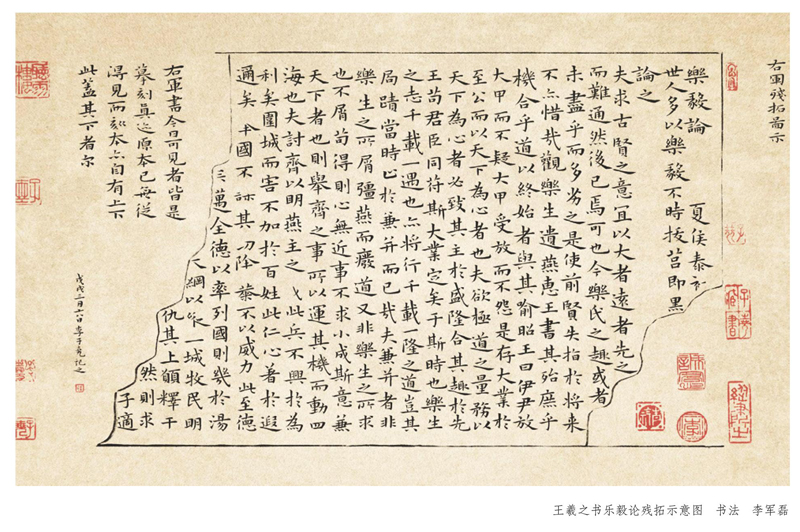 右軍殘拓茵示
樂毅論
夏侯泰初
世人多以樂毅不時拔莒即墨
論之
夫求古賢之意宜以大者遠者先之
而難通然後已焉可也今樂氏之趣或者
未盡乎而多劣之是使前賢失指於將来
不亦惜哉觀樂生遺燕惠王書其殆庶乎
機合乎道以終始者與其喻昭王曰伊尹放
大甲而不疑大甲受放而不怨是存大業於
至公而以天下為心者也夫欲極道之量務以
天下為心者必致其主於盛隆合其趣於先
王苟君臣同苻斯大業定矣于斯時也樂生
之志千載一遇也亦將行千載一隆之道豈其
局蹟當時止於兼并而已哉夫兼并者非
樂生之所屑彊燕而廢道又非樂生之所求
也不屑苟得則心無近事不求小成斯意兼
天下者也則舉齊之事所以運其機而動四
海也夫討齊以明燕主之此兵不興於為
利矣圍城而害不加於百姓此仁心著於遐
邇矣國不其以威力此至德
萬全德以率列國則幾於湯
綱以一城牧民明
仇其上願釋干
然則求
子適
右軍書今日可見者皆是
摹刻真迹原本已無從
得見而刻本亦自有上下
此蓋其下者尔
戊戌二月六日李子堯記之
王羲之书乐毅论残拓示意图 书法 李军磊